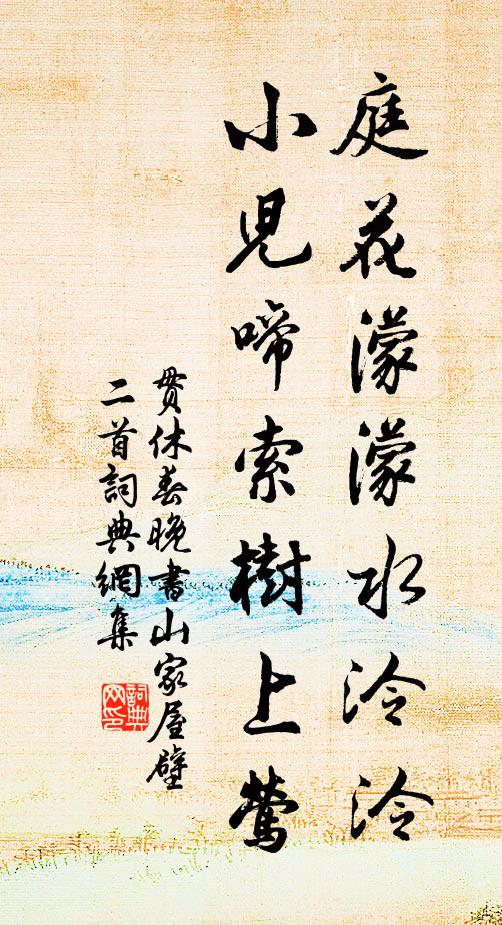 庭花濛濛水泠泠
小兒啼索樹上鶯
貫休春晚書山家屋壁
二首詞典網集
詞典
网印